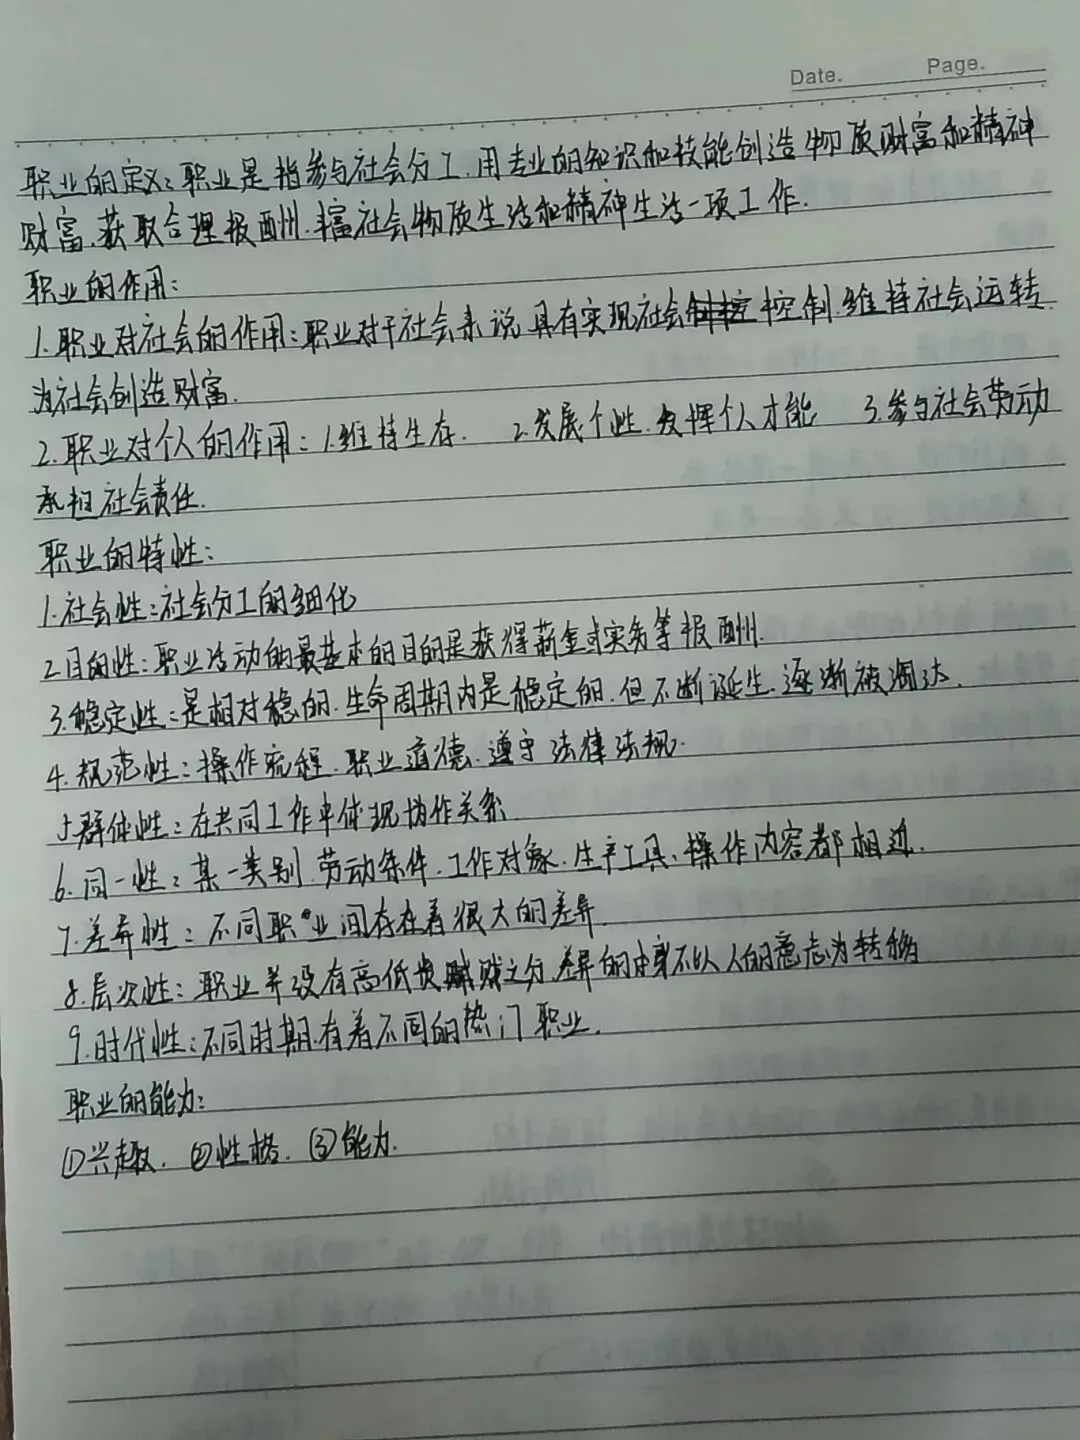 Date. Page.
职业的定义:职业是指参与社会分工.用专业的知识和技能创造物质财富和精神
财富.获取合理报酬.丰富社会物质生活和精神生活一项工作.
职业的作用:
1.职业对社会的作用:职业对于社会来说具有实现社会控制.维持社会运转.
为社会创造财富.
2.职业对个人的作用:1.维持生存. 2.发展个性.发挥个人才能 3.参与社会劳动
承担社会责任.
职业的特性:
1.社会性:社会分工的细化
2.目的性:职业活动的最基本的目的是获得薪金或实务等报酬.
3.稳定性:是相对稳的.生命周期内是稳定的.但不断诞生.逐渐被淘汰.
4.规范性:操作流程.职业道德.遵守法律法规.
5.群体性:在共同工作中体现协作关系.
6.同一性:某一类别.劳动条件.工作对象.生产工具、操作内容都相近.
7.差异性:不同职业间存在着很大的差异.
8.层次性:职业并没有高低贵贱之分.差异的由来不以人的意志为转移
9.时代性:不同时期.有着不同的热门职业.
职业的能力:
①兴趣. ②性格. ③能力.